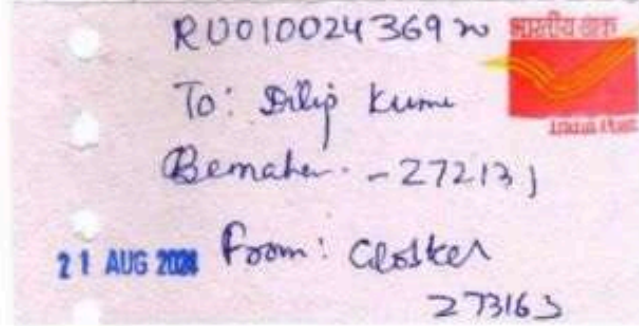 RU010024369IN
भारतीय डाक
India Post
To: Dilip Kumar
Bemaher - 272131
21 AUG 2024
From: Closker
273163